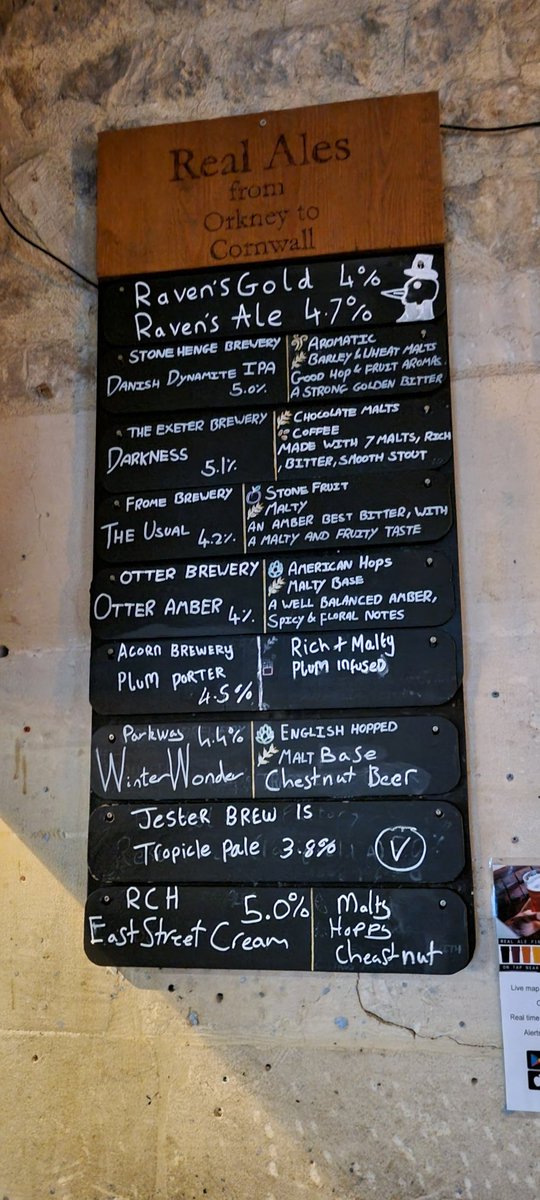 Real Ales
from
Orkney to
Cornwall
Raven's Gold 4%
Raven's Ale 4.7%
STONE HENGE BREWERY
DANISH DYNAMITE IPA
5.0%
AROMATIC
BARLEY & WHEAT MALTS
GOOD HOP & FRUIT AROMAS
A STRONG GOLDEN BITTER
THE EXETER BREWERY
DARKNESS 5.1%
CHOCOLATE MALTS
COFFEE
MADE WITH 7 MALTS, RICH
, BITTER, SMOOTH STOUT
FROME BREWERY
THE USUAL 4.2%
STONE FRUIT
MALTY
AN AMBER BEST BITTER, WITH
A MALTY AND FRUITY TASTE
OTTER BREWERY
OTTER AMBER 4%
AMERICAN HOPS
MALTY BASE
A WELL BALANCED AMBER,
SPICY & FLORAL NOTES
ACORN BREWERY
PLUM PORTER
4.5%
Rich + Malty
PLUM INFUSED
Parkway 4.4%
Winter Wonder
ENGLISH HOPPED
MALT BASE
Chestnut Beer
Jester BREW IS
Tropicle Pale 3.8%
V
RCH 5.0%
East Street Cream
Malty
Hoppy
Cheastnut
REAL ALE FIN
ON TAP NEAR
Live map
Real time
Alerts